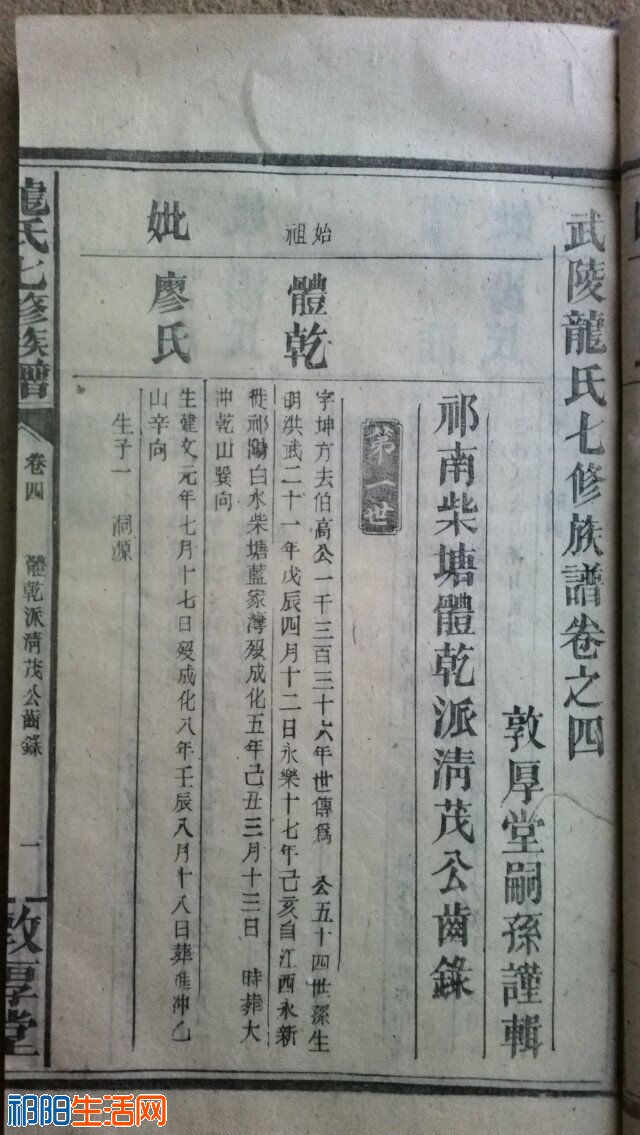 武陵龍氏七修族譜卷之四
敦厚堂嗣孫謹輯
祁南柴塘體乾派清茂公齒錄
第一世
始祖
體乾
字坤方去伯高公一千三百三十六年世傳爲 公五十四世孫生
明洪武二十一年戊辰四月十二日永樂十七年己亥自江西永新
徙祁陽白水柴塘藍家灣歿成化五年己丑三月十三日 時葬大
沖乾山巽向
妣
廖氏
生建文元年七月十七日歿成化八年壬辰八月十八日葬進沖乙
山辛向
生子一 洞源
龍氏七修族譜
卷四
體乾派清茂公齒錄
一
敦厚堂
祁阳生活网